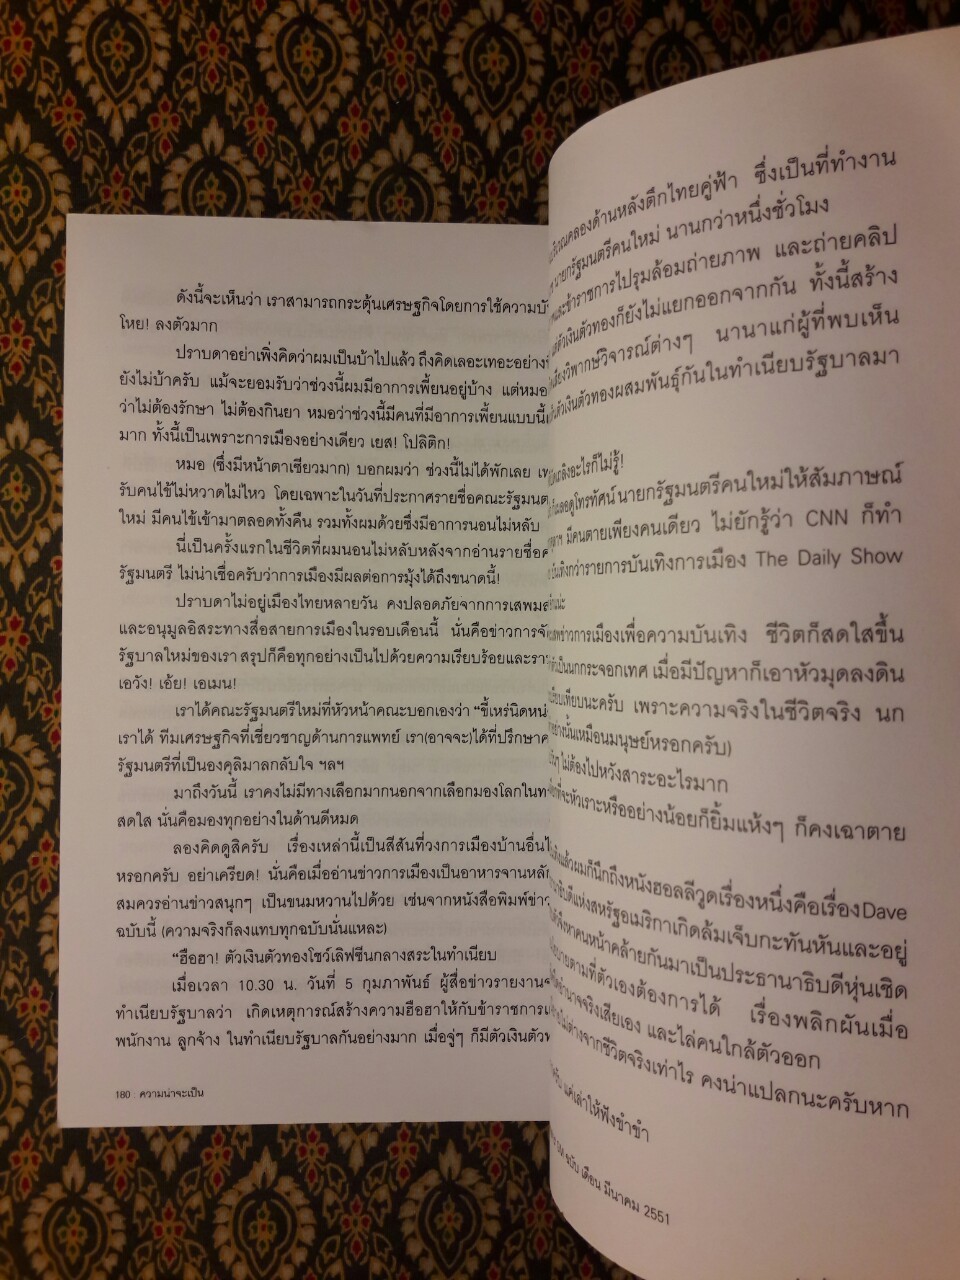 ดังนี้จะเห็นว่า เราสามารถกระตุ้นเศรษฐกิจโดยการใช้ความ
โหย! ลงตัวมาก
ปราบดาอย่าเพิ่งคิดว่าผมเป็นบ้าไปแล้ว ถึงคิดเลอะเทอะอย่าง
ยังไม่บ้าครับ แม้จะยอมรับว่าช่วงนี้ผมมีอาการเพี้ยนอยู่บ้าง แต่หมอ
ว่าไม่ต้องรักษา ไม่ต้องกินยา หมอว่าช่วงนี้มีคนที่มีอาการเพี้ยนแบบนี้
มาก ทั้งนี้เป็นเพราะการเมืองอย่างเดียว เยส! โปลิติก!
หมอ (ซึ่งมีหน้าตาเซียวมาก) บอกผมว่า ช่วงนี้ไม่ได้พักเลย
รับคนไข้ไม่หวาดไม่ไหว โดยเฉพาะในวันที่ประกาศรายชื่อคณะรัฐมนต
ใหม่ มีคนไข้เข้ามาตลอดทั้งคืน รวมทั้งผมด้วยซึ่งมีอาการนอนไม่หลับ
นี่เป็นครั้งแรกในชีวิตที่ผมนอนไม่หลับหลังจากอ่านรายชื่อ
รัฐมนตรี ไม่น่าเชื่อครับว่าการเมืองมีผลต่อการมุ้งได้ถึงขนาดนี้!
ปราบดาไม่อยู่เมืองไทยหลายวัน คงปลอดภัยจากการเสพ
และอนุมูลอิสระทางสื่อสายการเมืองในรอบเดือนนี้ นั่นคือข่าวการ
รัฐบาลใหม่ของเรา สรุปก็คือทุกอย่างเป็นไปด้วยความเรียบร้อยและ
เอวัง! เอ้ย! เอเมน!
เราได้คณะรัฐมนตรีใหม่ที่หัวหน้าคณะบอกเองว่า “ขี้เหร่นิด
เราได้ ทีมเศรษฐกิจที่เชี่ยวชาญด้านการแพทย์ เรา(อาจจะ)ได้ที่ปรึกษา
รัฐมนตรีที่เป็นองคุลิมาลกลับใจ ฯลฯ
มาถึงวันนี้ เราคงไม่มีทางเลือกมากนอกจากเลือกมองโลกใน
สดใส นั่นคือมองทุกอย่างในด้านดีหมด
ลองคิดดูสิครับ เรื่องเหล่านี้เป็นสีสันที่วงการเมืองบ้านอื่น
หรอกครับ อย่าเครียด! นั่นคือเมื่ออ่านข่าวการเมืองเป็นอาหารจานหลัก
สมควรอ่านข่าวสนุกๆ เป็นขนมหวานไปด้วย เช่นจากหนังสือพิมพ์ข่าว
ฉบับนี้ (ความจริงก็ลงแทบทุกฉบับนั่นแหละ)
“ฮือฮา! ตัวเงินตัวทองโชว์เลิฟซีนกลางสระในทำเนียบ
เมื่อเวลา 10.30 น. วันที่ 5 กุมภาพันธ์ ผู้สื่อข่าวรายงาน
ทำเนียบรัฐบาลว่า เกิดเหตุการณ์สร้างความฮือฮาให้กับข้าราชการ
พนักงาน ลูกจ้าง ในทำเนียบรัฐบาลกันอย่างมาก เมื่อจู่ๆ ก็มีตัวเงินตัว
180 . ความน่าจะเป็น
คลองด้านหลังตึกไทยคู่ฟ้า ซึ่งเป็นที่ทำงาน
นายกรัฐมนตรีคนใหม่ นานกว่าหนึ่งชั่วโมง
และข้าราชการไปรุมล้อมถ่ายภาพ และถ่ายคลิป
ตัวเงินตัวทองก็ยังไม่แยกออกจากกัน ทั้งนี้สร้าง
วิพากษ์วิจารณ์ต่างๆ นานาแก่ผู้ที่พบเห็น
ตัวเงินตัวทองผสมพันธุ์กันในทำเนียบรัฐบาลมา
อะไรก็ไม่รู้!
โทรทัศน์ นายกรัฐมนตรีคนใหม่ให้สัมภาษณ์
มีคนตายเพียงคนเดียว ไม่ยักรู้ว่า CNN ก็ทำ
บันเทิงกว่ารายการบันเทิงการเมือง The Daily Show
ข่าวการเมืองเพื่อความบันเทิง ชีวิตก็สดใสขึ้น
เป็นนกกระจอกเทศ เมื่อมีปัญหาก็เอาหัวมุดลงดิน
เปรียบเทียบนะครับ เพราะความจริงในชีวิตจริง นก
อย่างนั้นเหมือนมนุษย์หรอกครับ)
ไม่ต้องไปหวังสาระอะไรมาก
ที่จะหัวเราะหรืออย่างน้อยก็ยิ้มแห้งๆ ก็คงเฉาตาย
แล้วผมก็นึกถึงหนังฮอลลีวูดเรื่องหนึ่งคือเรื่อง Dave
แห่งสหรัฐอเมริกาเกิดล้มเจ็บกะทันหันและอยู่
หาคนหน้าคล้ายกันมาเป็นประธานาธิบดีหุ่นเชิด
ตามที่ตัวเองต้องการได้ เรื่องพลิกผันเมื่อ
อำนาจจริงเสียเอง และไล่คนใกล้ตัวออก
ไม่ต่างจากชีวิตจริงเท่าไร คงน่าแปลกนะครับหาก
แค่เล่าให้ฟังขำขำ
ฉบับ เดือน มีนาคม 2551